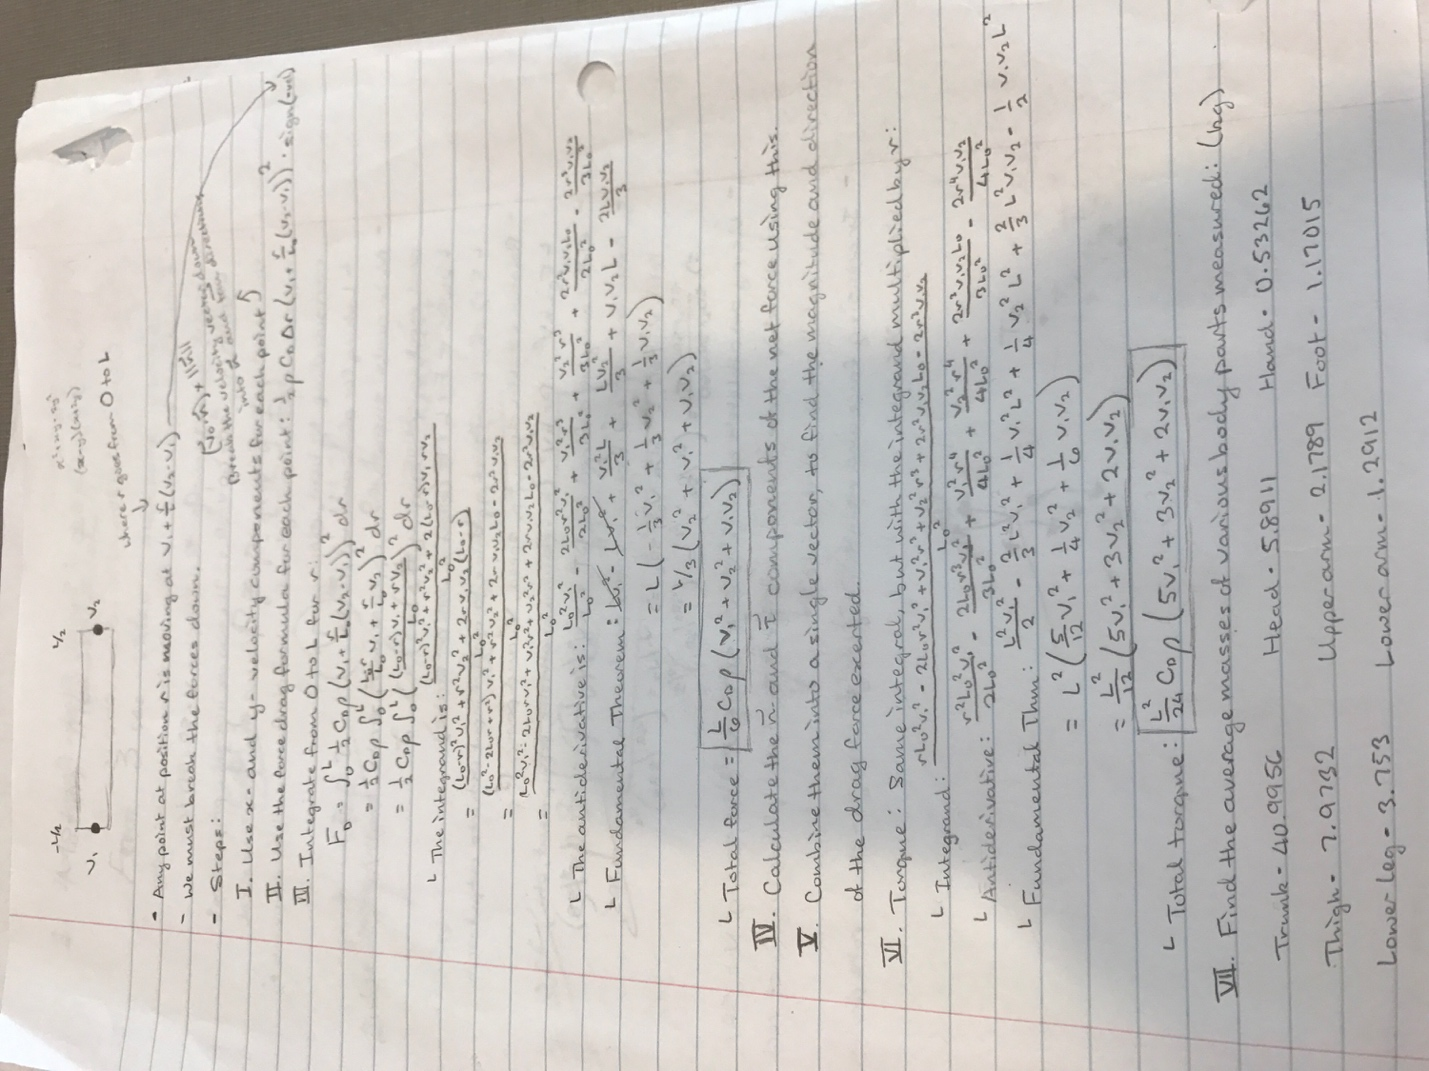 x²+xy-xy-y²
(x-y)(x+y)
-L/2 L/2
V₁ V₂
where r goes from 0 to L
- Any point at position r is moving at v₁ + r/L (v₂-v₁)
- We must break the forces down.
Break the velocity vectors down
into and directions
- Steps:
I. Use x- and y- velocity components for each point
II. Use the force drag formula for each point: ½ ρ C_D Δr (v₁ + r/L₀ (v₂-v₁))² · sign(
III. Integrate from 0 to L for r:
F_D = ∫₀ᴸ ½ C_D ρ (v₁ + r/L₀ (v₂-v₁))² dr
= ½ C_D ρ ∫₀ᴸ (L₀-r/L₀ v₁ + r/L₀ v₂)² dr
= ½ C_D ρ ∫₀ᴸ ((L₀-r)v₁ + rv₂ / L₀)² dr
└ The integrand is: (L₀-r)²v₁² + r²v₂² + 2(L₀-r)v₁rv₂ / L₀²
= (L₀-r)²v₁² + r²v₂² + 2rv₁v₂(L₀-r) / L₀²
= (L₀²-2L₀r+r²)v₁² + r²v₂² + 2rv₁v₂L₀ - 2r²v₁v₂ / L₀²
= L₀²v₁² - 2L₀rv₁² + v₁²r² + v₂²r² + 2rv₁v₂L₀ - 2r²v₁v₂ / L₀²
└ The antiderivative is: L₀²v₁²/L₀² - 2L₀r²v₁²/2L₀² + v₁²r³/3L₀² + v₂²r³/3L₀² + 2r²v₁v₂L₀/2L₀² - 2r³v₁v₂/3L₀²
└ Fundamental Theorem: Lv₁² - Lv₁² + v₁²L/3 + Lv₂²/3 + v₁v₂L - 2Lv₁v₂/3
= L(-⅓v₁² + ⅓v₂² + ⅓v₁v₂)
= L/3 (v₂² + v₁² + v₁v₂)
└ Total force = L/6 C_D ρ (v₁² + v₂² + v₁v₂)
IV. Calculate the and components of the net force using this.
V. Combine them into a single vector, to find the magnitude and direction
of the drag force exerted.
VI. Torque: Same integral, but with the integrand multiplied by r:
└ Integrand: rL₀²v₁² - 2L₀r²v₁² + v₁²r³ + v₂²r³ + 2r²v₁v₂L₀ - 2r³v₁v₂ / L₀²
└ Antiderivative: r²L₀²v₁²/2L₀² - 2L₀r³v₁²/3L₀² + v₁²r⁴/4L₀² + v₂²r⁴/4L₀² + 2r³v₁v₂L₀/3L₀² - 2r⁴v₁v₂/4L₀²
└ Fundamental Thm: L²v₁²/2 - ⅔L²v₁² + ¼v₁²L² + ¼v₂²L² + ⅔L²v₁v₂ - ½v₁v₂L²
= L²(5/12 v₁² + ¼v₂² + ⅙v₁v₂)
= L²/12 (5v₁² + 3v₂² + 2v₁v₂)
└ Total torque: L²/24 C_D ρ (5v₁² + 3v₂² + 2v₁v₂)
VII. Find the average masses of various body parts measured: (kg)
Trunk - 40.9956 Head - 5.8911 Hand - 0.53262
Thigh - 7.9732 Upper arm - 2.1789 Foot - 1.17015
Lower leg - 3.753 Lower arm - 1.2912